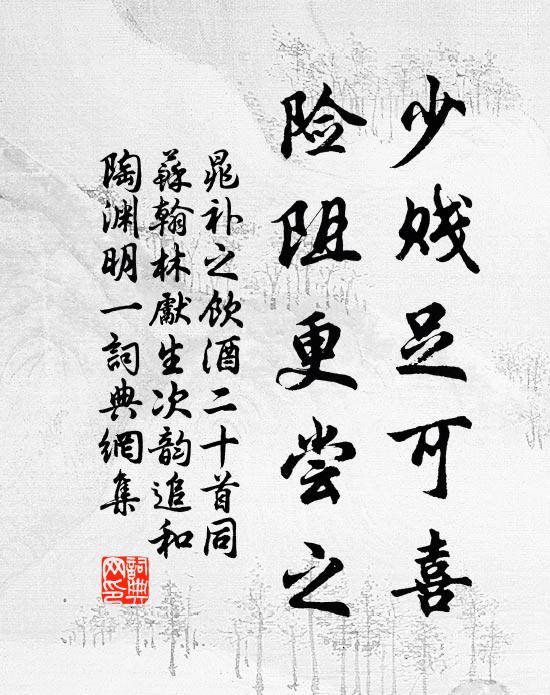 少贱足可喜
险阻更尝之
晁补之饮酒二十首同
蘇翰林獻生次韵追和
陶渊明一詞典網集
詞典网印